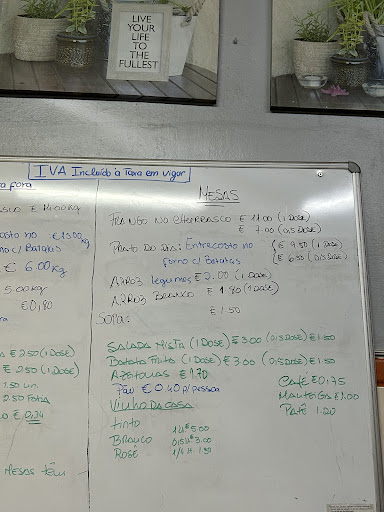 LIVE
YOUR
LIFE
TO THE
FULLEST
IVA Incluído à Taxa em vigor
ra fora
€ 14.00 Kg
osto no €15.00 Kg
rno c/ Batatas
€ 6.00 Kg
5.00 Kg
€0,80
ra
A €2.50 (1 DOSE)
€ 2.50 (1 DOSE)
1.50 un.
2.50 Fatia
€ 0.24
MESAS têm
MESAS
FRANGO NO CHURRASCO € 11.00 (1 DOSE)
€ 7.00 (0,5 DOSE)
PRATO DO DIA: Entrecosto no € 9.50 (1 DOSE)
forno c/ Batatas € 6.50 (0,5 DOSE)
ARROZ legumes € 2.00 (1 DOSE)
ARROZ BRANCO € 1.80 (1 DOSE)
SOPA: € 1.50
SALADA MISTA (1 DOSE) €3.00 (0,5 DOSE) €1.50
Batata Frita (1 DOSE) €3.00 (0,5 DOSE) €1.50
AZEITONAS € 1.70
Pão € 0.40 p/pessoa
Café €0,75
VINHO DA CASA
MANTEIGA €1.00
Patê 1.20
TINTO 1 Lt 5.00
BRANCO 0,5 Lt 3.00
ROSÉ 1/4 lt. 1.90